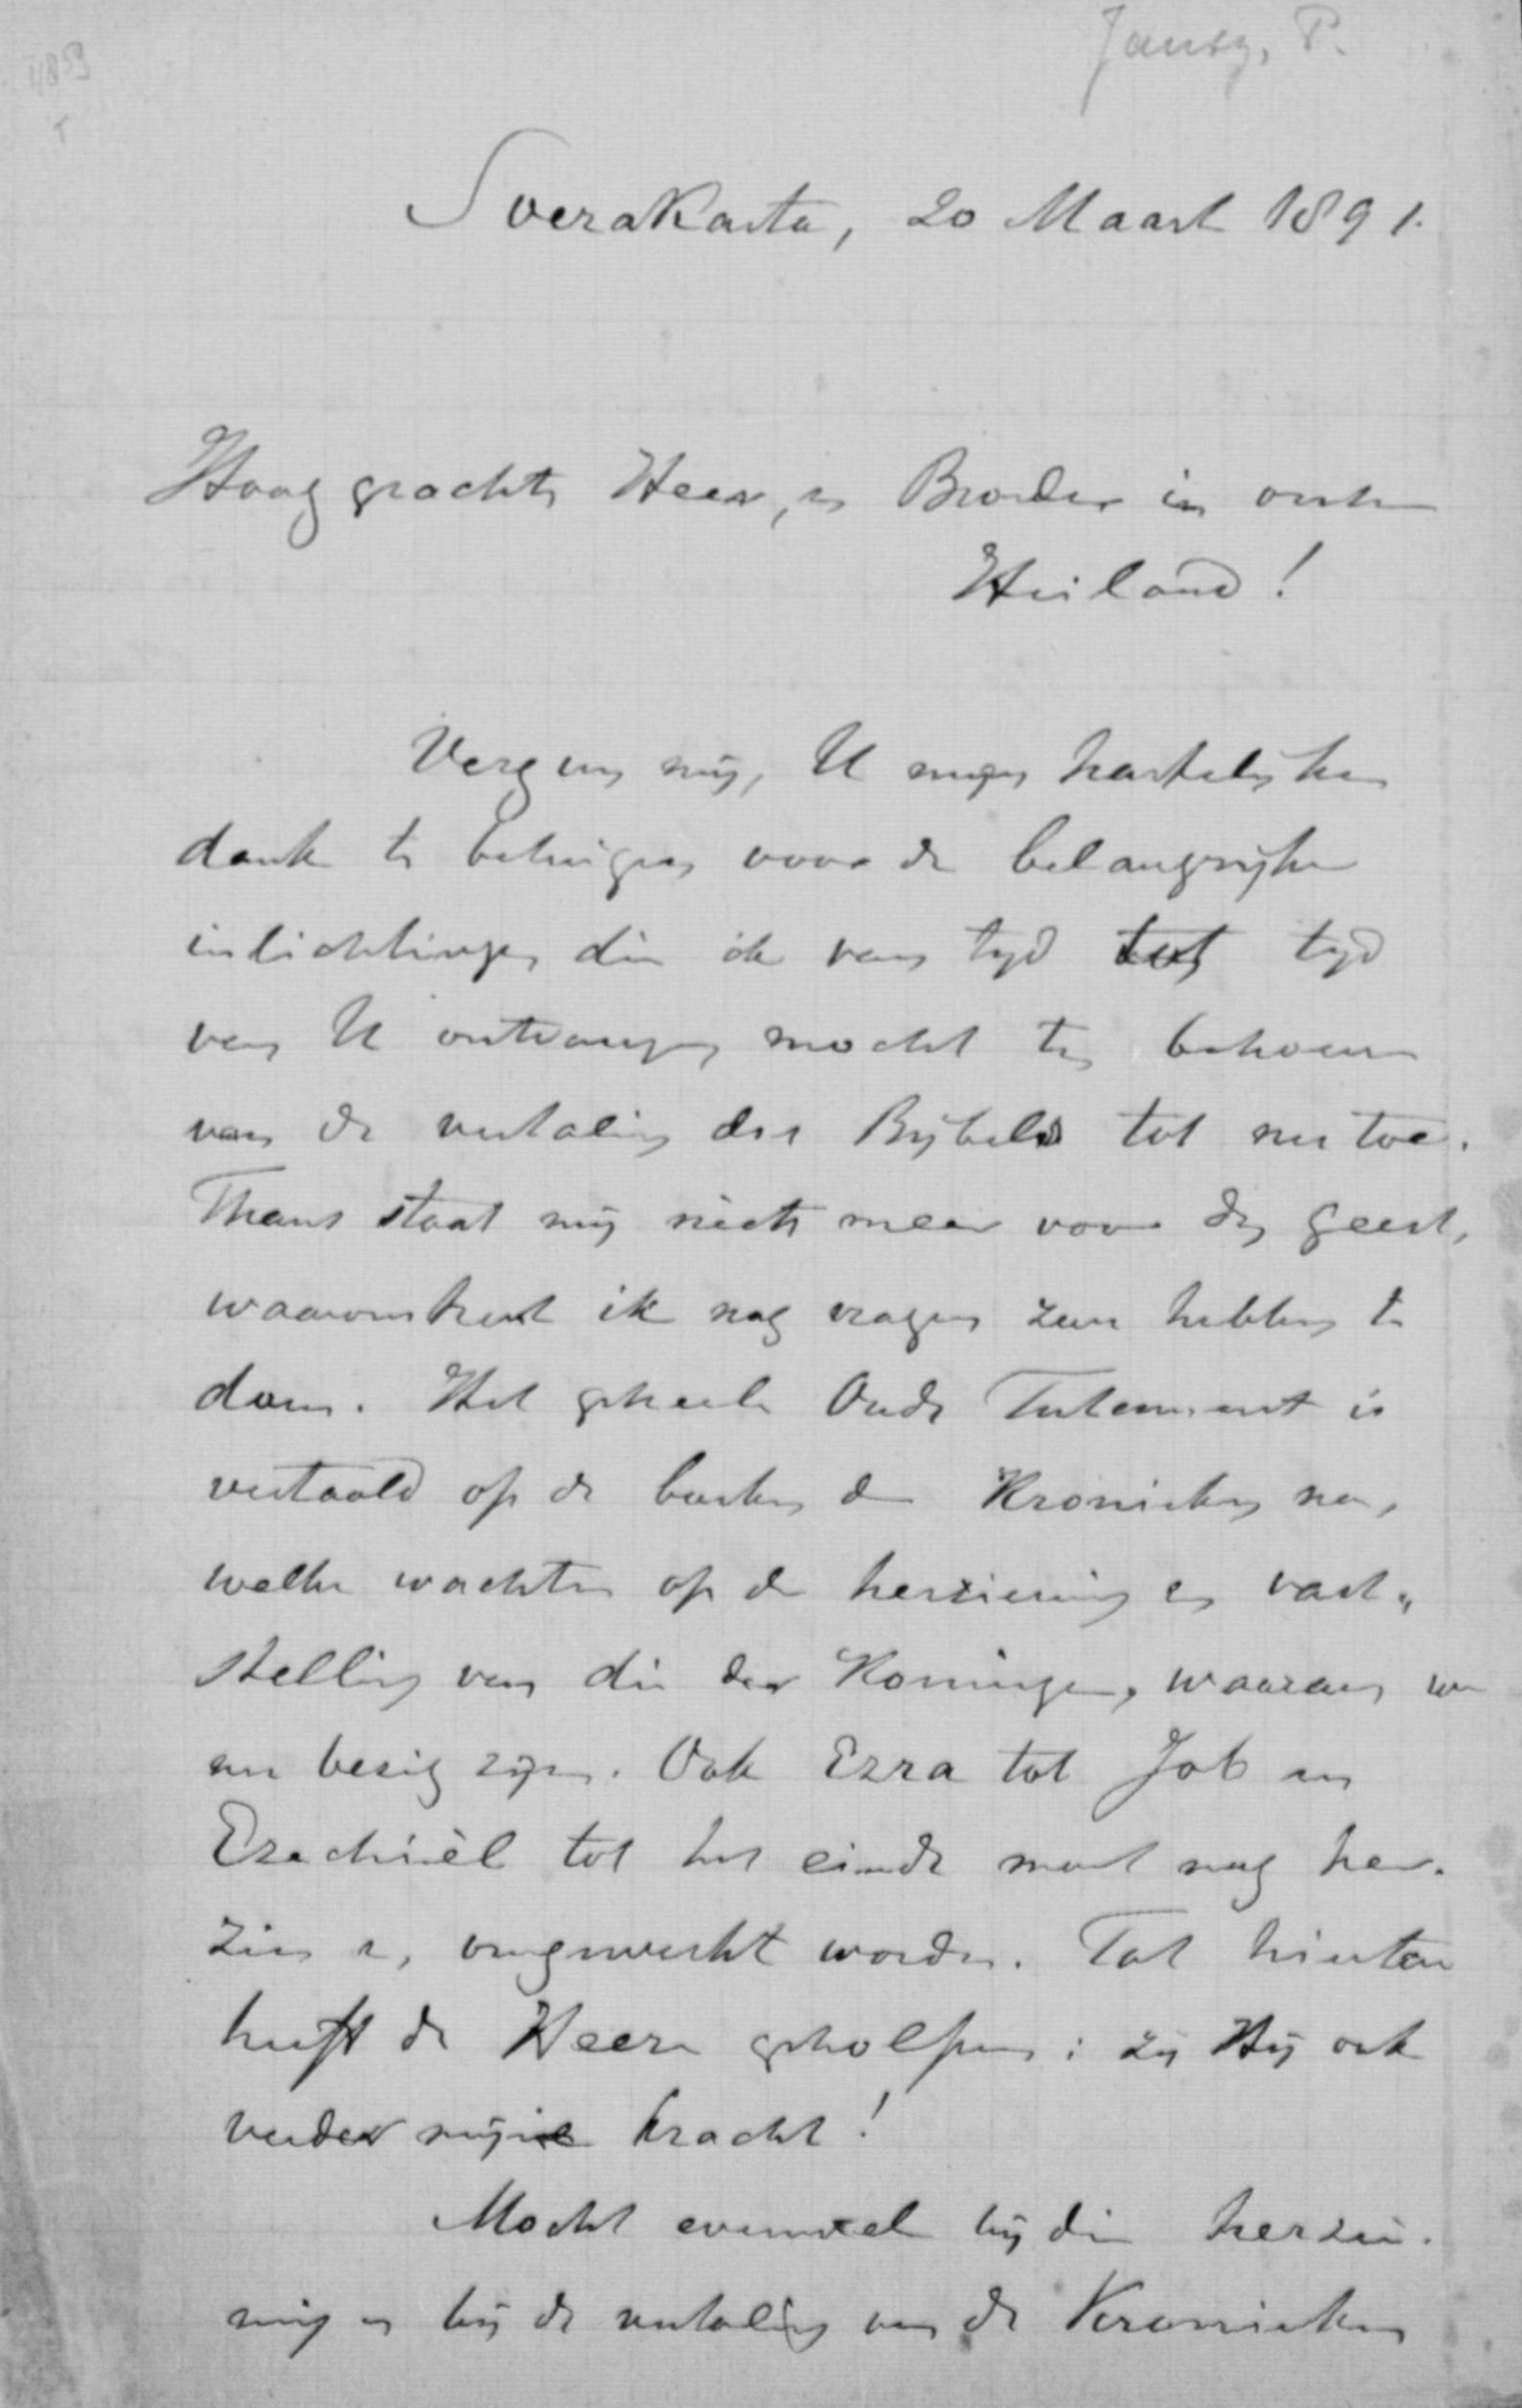 Jansz, P.
4859
Soerakarta, 20 Maart 1891.
Hoog geachte Heer, en Broeder in onzen
Heiland!
Vergun mij, U mijn hartelijken
dank te betuigen voor de belangrijke
inlichtingen die ik van tijd tot tijd
van U ontvangen mocht ten behoeve
van de vertaling des Bijbels tot nu toe.
Thans staat mij niets meer voor den geest,
waaromtrent ik nog vragen zou hebben te
doen. Het geheele Oude Testament is
vertaald op de boeken der Kronieken na,
welke wachten op de herziening en vast„
stelling van die der Koningen, waaraan we
nu bezig zijn. Ook Ezra tot Job en
Ezechiël tot het einde moet nog her-
zien en omgewerkt worden. Tot hiertoe
heeft de Heere geholpen; zij Hij ook
verder mijne kracht!
Mocht evenwel bij die herzie-
ning en bij de vertaling van de Kronieken